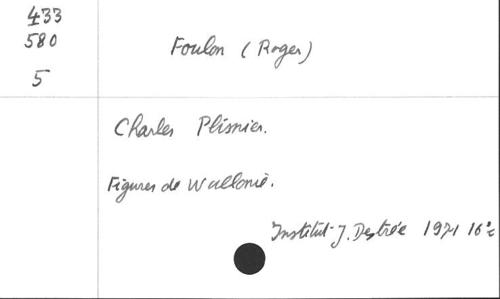 433
580
5
Foulon (Roger)
Charles Plisnier.
Figures de Wallonie.
Institut J. Destrée 1971 16°